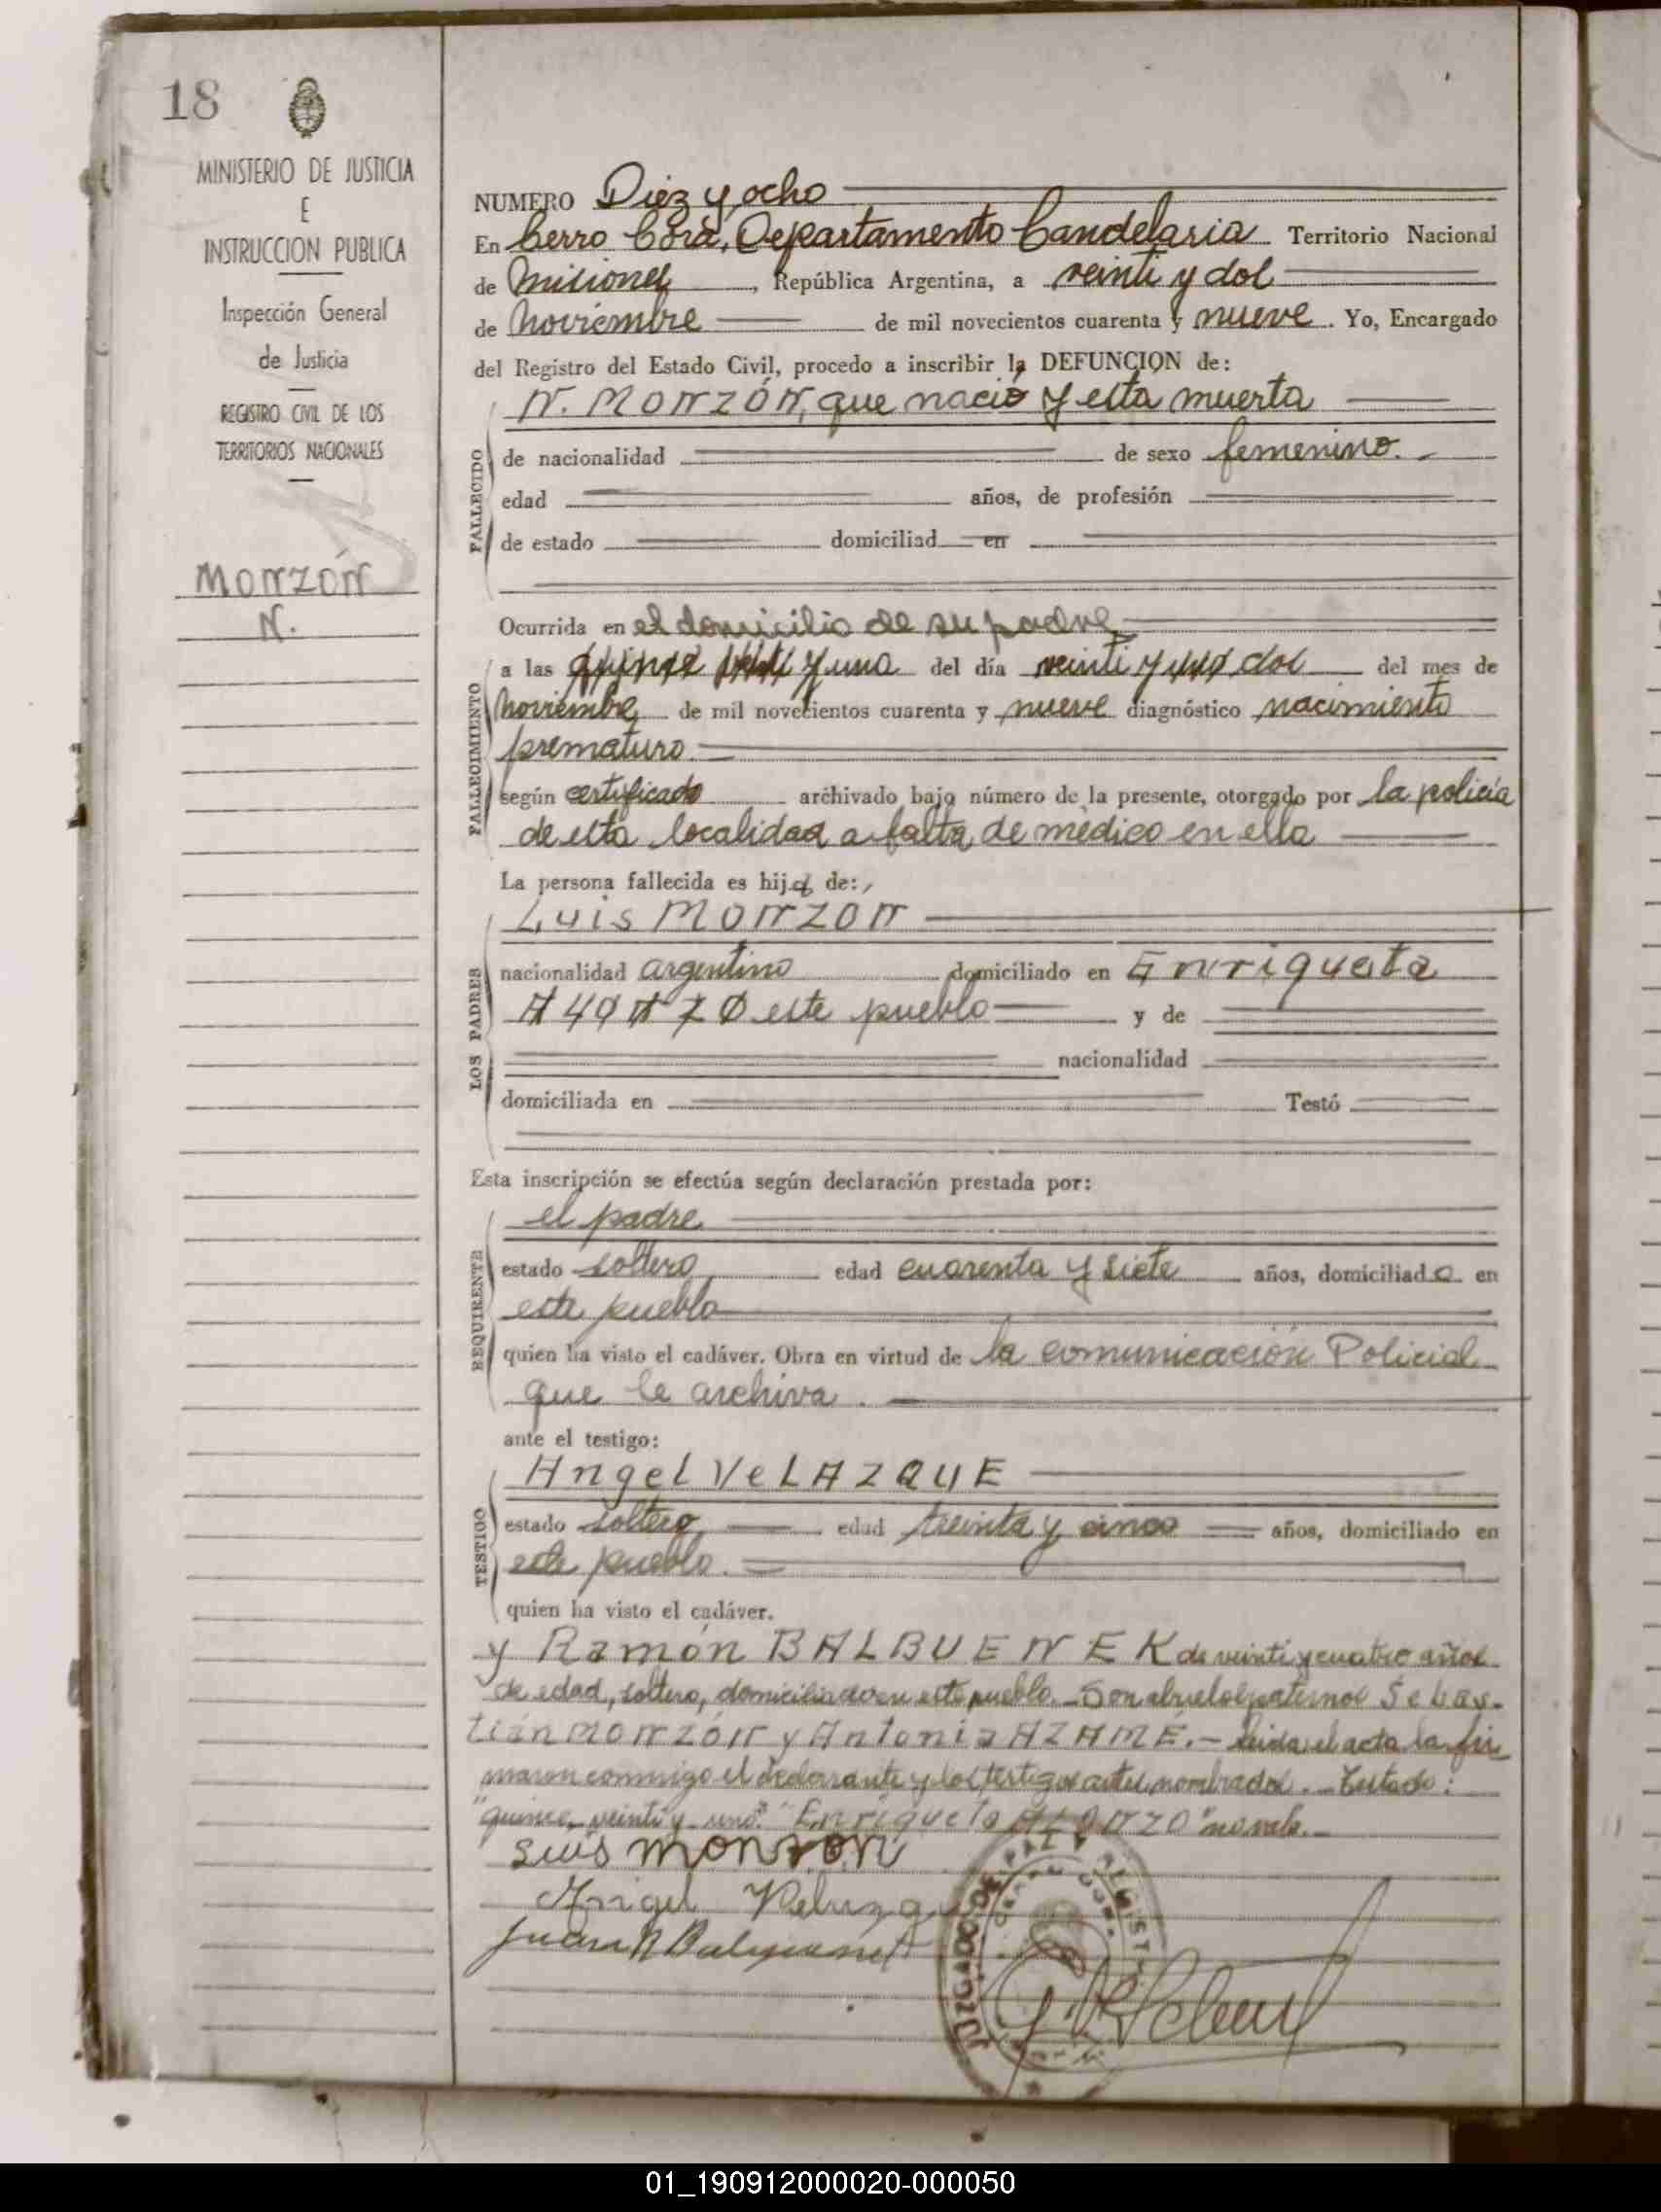 18
MINISTERIO DE JUSTICIA
E
INSTRUCCION PUBLICA
Inspección General
de Justicia
REGISTRO CIVIL DE LOS
TERRITORIOS NACIONALES
Monzón
N.
NUMERO Diez y ocho
En Cerro Corá, Departamento Candelaria Territorio Nacional
de Misiones, República Argentina, a veinti y dos
de Noviembre de mil novecientos cuarenta y nueve. Yo, Encargado
del Registro del Estado Civil, procedo a inscribir la DEFUNCION de:
N. MONZÓN, que nació y esta muerta
FALLECIDO
de nacionalidad de sexo femenino.
edad años, de profesión
de estado domiciliad en
Ocurrida en el domicilio de su padre
FALLECIMIENTO
a las quince y una del día veinti y uno dos del mes de
Noviembre de mil novecientos cuarenta y nueve diagnóstico nacimiento
prematuro.
según certificado archivado bajo número de la presente, otorgado por la policia
de esta localidad a falta de médico en ella
La persona fallecida es hija de:
LOS PADRES
Luis MONZON
nacionalidad argentino domiciliado en Enriqueta
este pueblo y de
nacionalidad
domiciliada en Testó
Esta inscripción se efectúa según declaración prestada por:
REQUIRENTE
el padre
estado soltero edad cuarenta y siete años, domiciliado en
este pueblo
quien ha visto el cadáver. Obra en virtud de la comunicación Policial
que se archiva.
ante el testigo:
TESTIGO
Angel VeLAZQUE
estado soltero edad treinta y cinco años, domiciliado en
este pueblo.
quien ha visto el cadáver.
y Ramón BALBUENEK de veinti y cuatro años
de edad, soltero, domiciliado en este pueblo. Son abuelos paternos Sebas-
tián MONZÓN y Antonia AZAMÉ.- Leida el acta la fir
maron conmigo el declarante y los testigos antes nombrados. Testado:
"quince, veinti y uno." "Enriqueta ALONZO" no vale.
Luis monzon
Angel Velazque
Juan R
JUZGADO DE PAZ Y REGISTRO
01_190912000020-000050